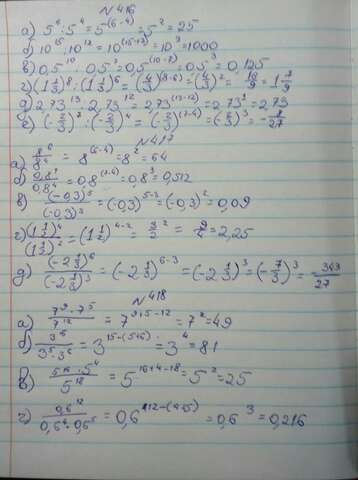 № 416
а) 5⁶ : 5⁴ = 5⁽⁶⁻⁴⁾ = 5² = 25
б) 10¹⁵ : 10¹² = 10⁽¹⁵⁻¹²⁾ = 10³ = 1000
в) 0,5¹⁰ : 0,5⁷ = 0,5⁽¹⁰⁻⁷⁾ = 0,5³ = 0,125
г) (1 1/3)⁸ : (1 1/3)⁶ = (4/3)⁽⁸⁻⁶⁾ = (4/3)² = 16/9 = 1 7/9
д) 2,73¹³ : 2,73¹² = 2,73⁽¹³⁻¹²⁾ = 2,73¹ = 2,73
е) (-2/3)⁷ : (-2/3)⁴ = (-2/3)⁽⁷⁻⁴⁾ = (-2/3)³ = -8/27
№ 417
а) 8⁶/8⁴ = 8⁽⁶⁻⁴⁾ = 8² = 64
б) 0,8⁷/0,8⁴ = 0,8⁽⁷⁻⁴⁾ = 0,8³ = 0,512
в) (-0,3)⁵/(-0,3)³ = (-0,3)⁵⁻³ = (-0,3)² = 0,09
г) (1 1/2)⁴/(1 1/2)² = (1 1/2)⁴⁻² = 3/2² = 9/4 = 2,25
д) (-2 1/3)⁶/(-2 1/3)³ = (-2 1/3)⁶⁻³ = (-2 1/3)³ = (-7/3)³ = -343/27
№ 418
а) 7⁹·7⁵/7¹² = 7⁹⁺⁵⁻¹² = 7² = 49
б) 3¹⁵/3⁵·3⁶ = 3¹⁵⁻⁽⁵⁺⁶⁾ = 3⁴ = 81
в) 5¹⁶·5⁴/5¹⁸ = 5¹⁶⁺⁴⁻¹⁸ = 5² = 25
г) 0,6¹²/0,6⁴·0,6⁵ = 0,6¹²⁻⁽⁴⁺⁵⁾ = 0,6³ = 0,216